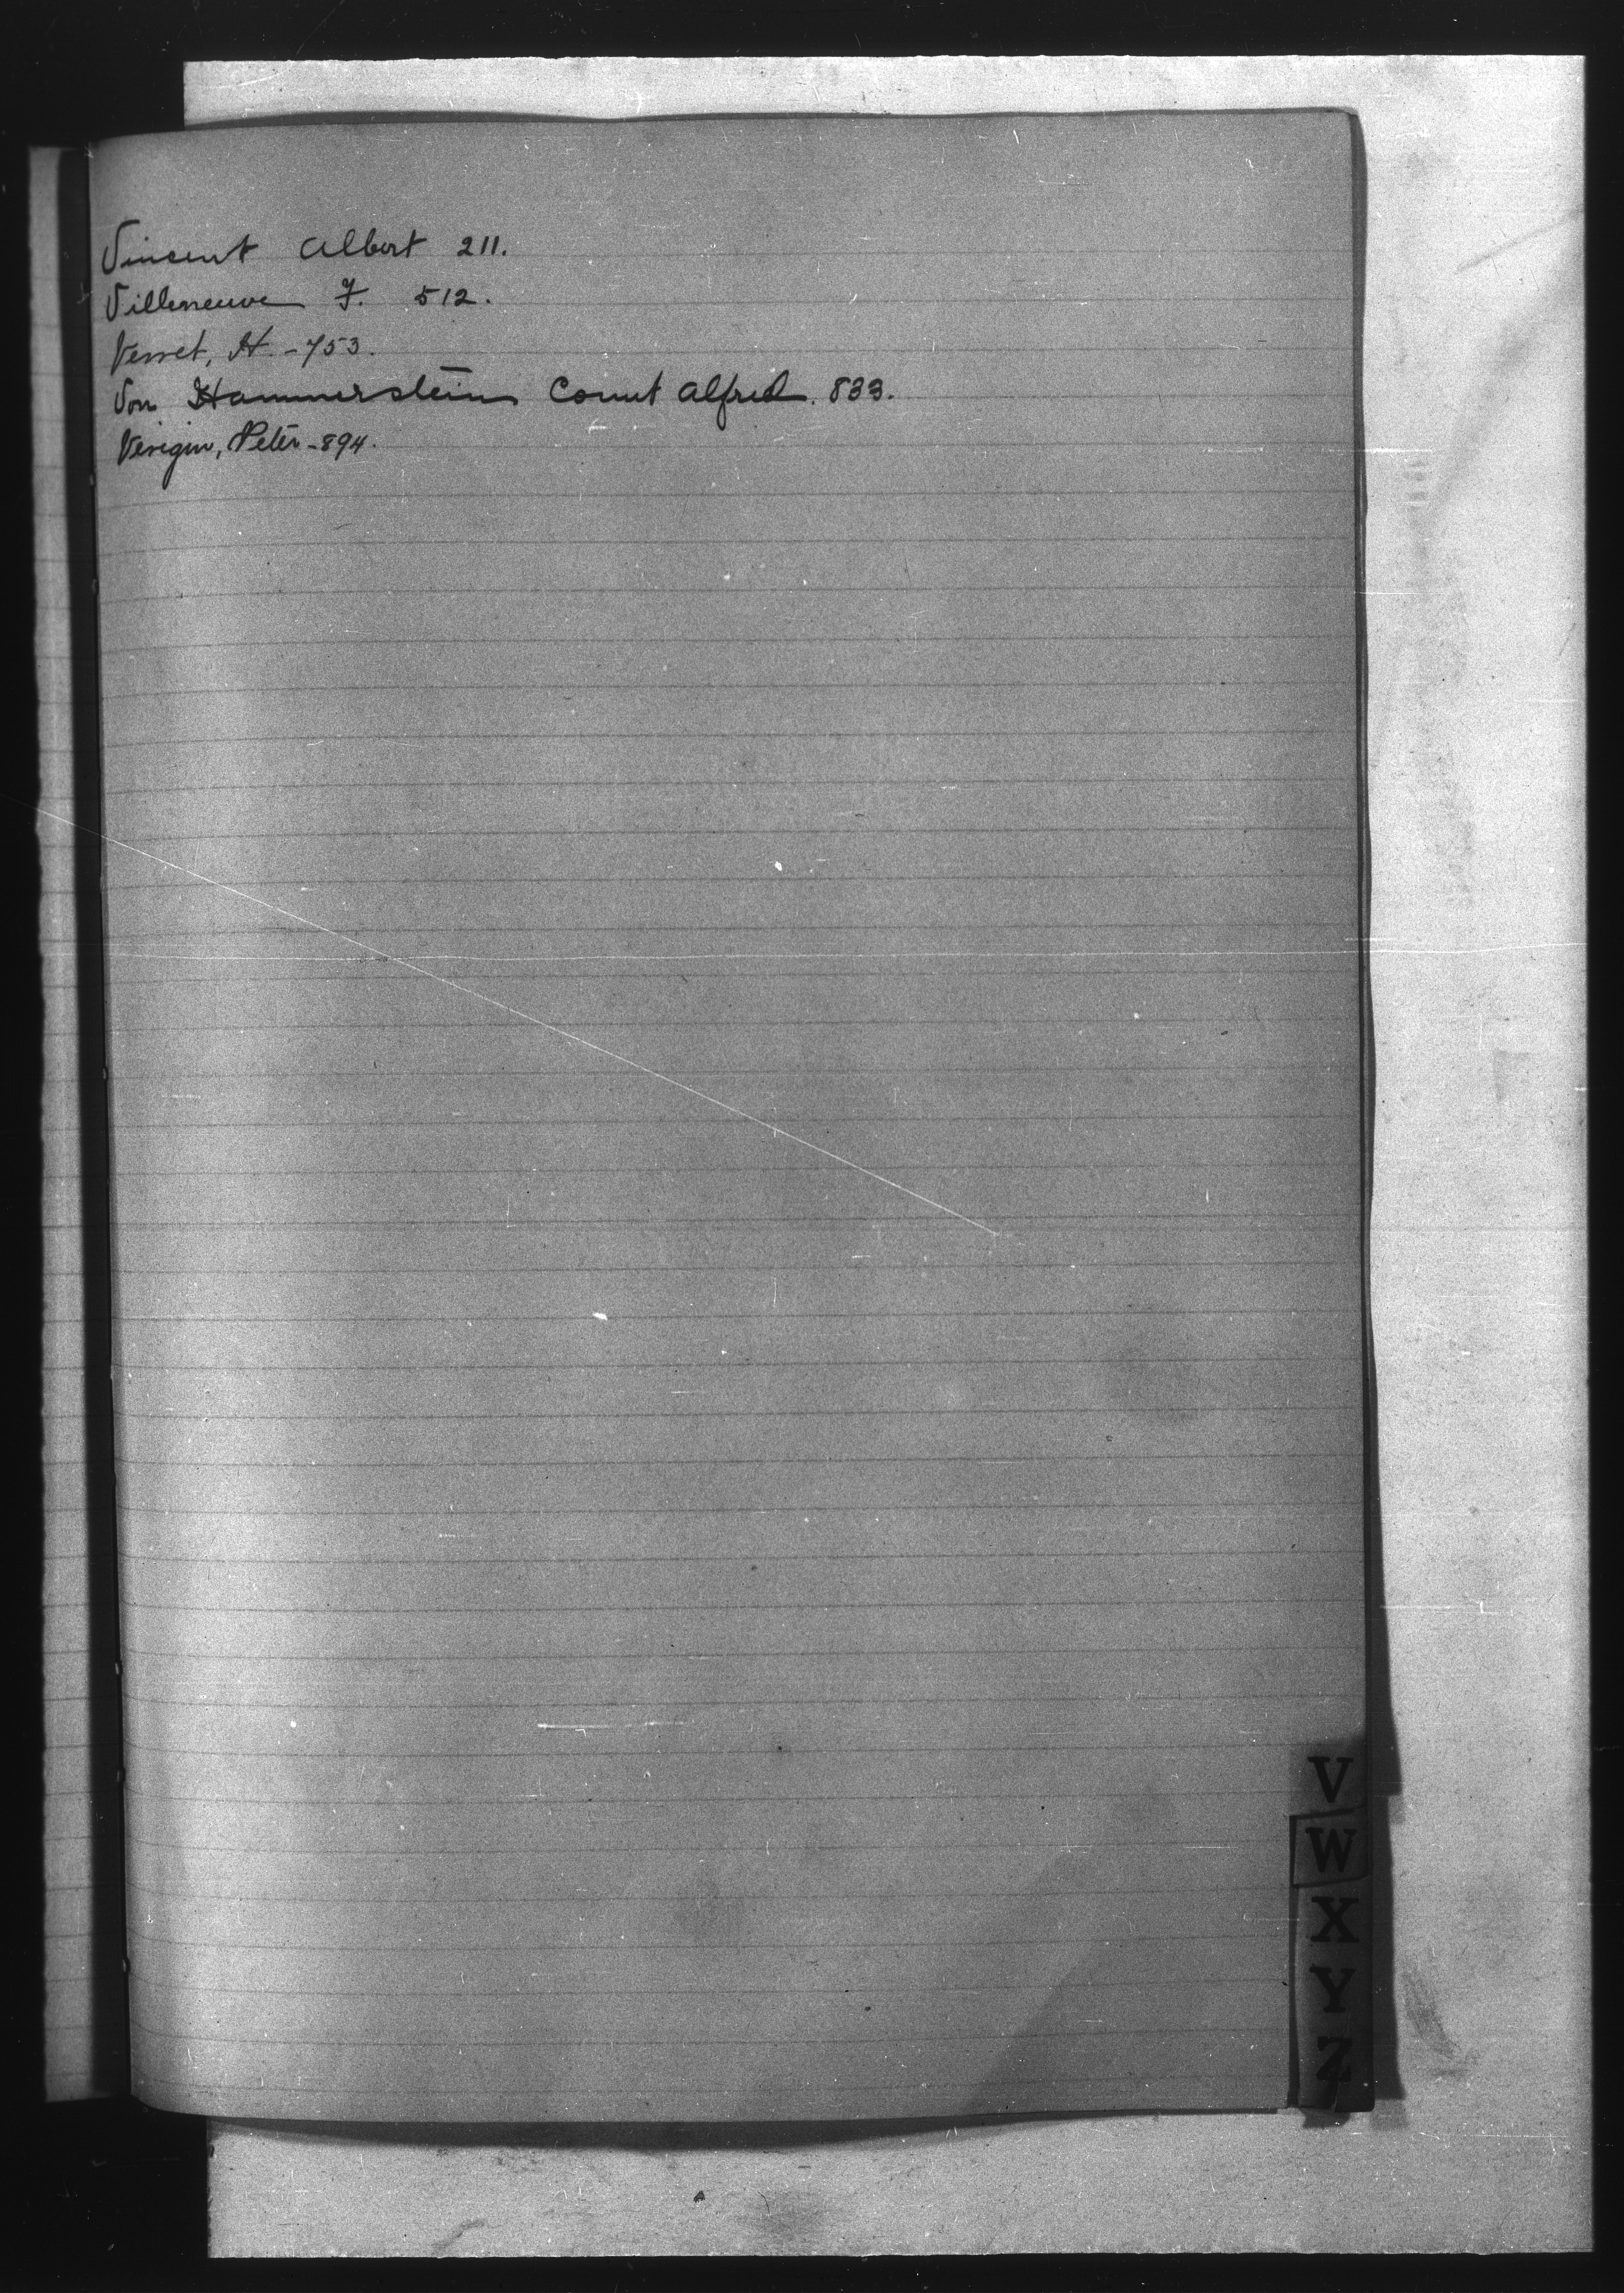 Vincent Albert 211.
Villeneuve F. 512.
Verret, A. - 753.
Von Hammerstein Count Alfred. 833.
Verigin, Peter - 894.
V
W
X
Y
Z